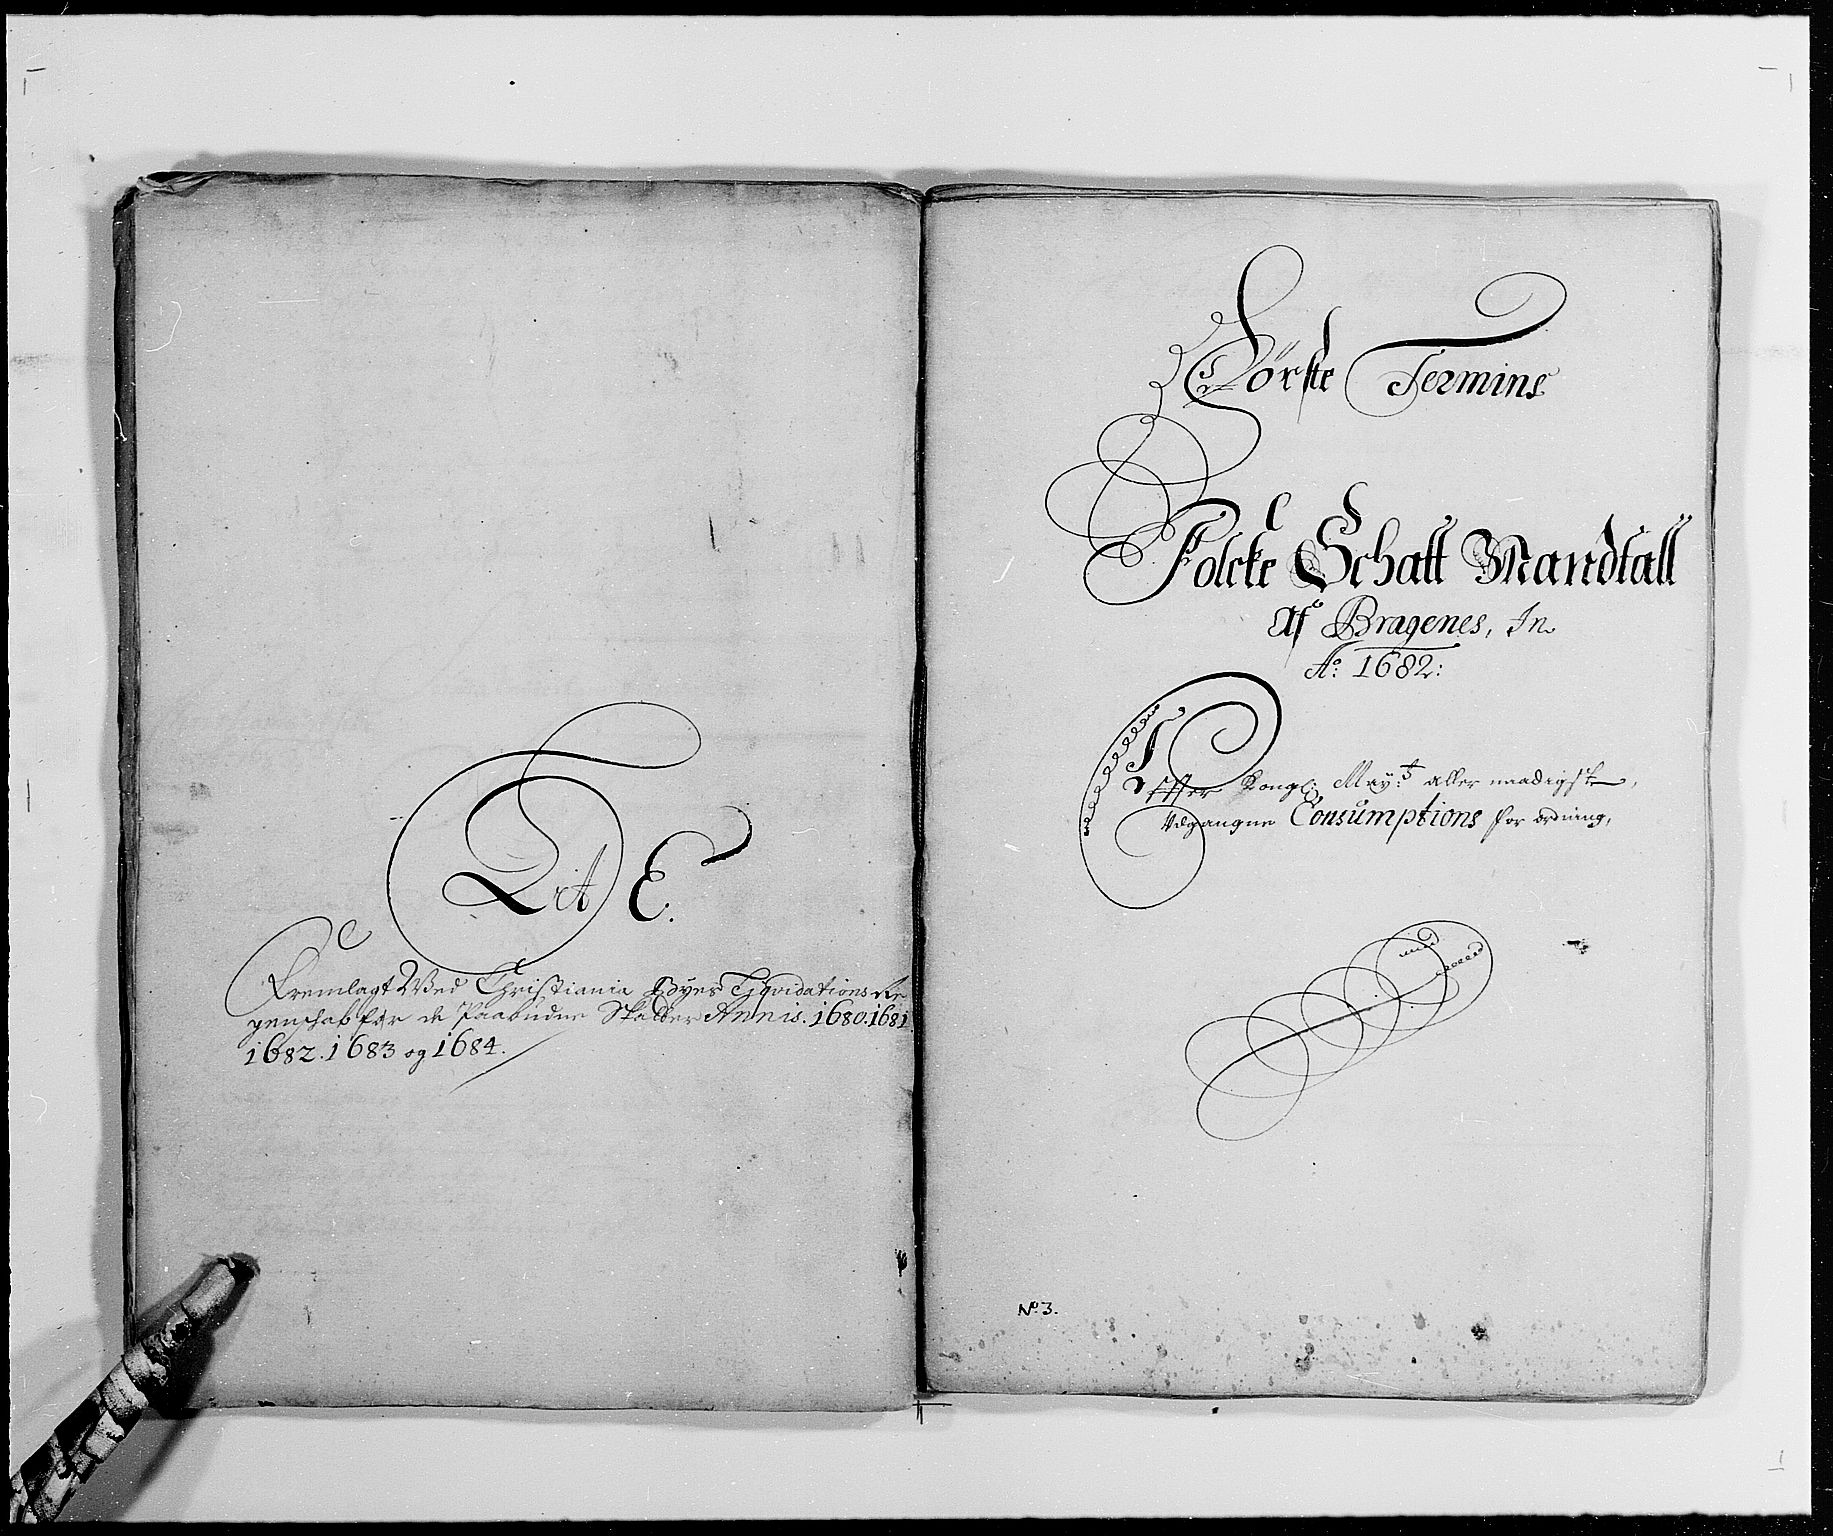 Lit E.
Fremlagt Wed Christiania Byes Liqvidations Re
genschab for de Paabudne Skatter Annis. 1680. 1681.
1682. 1683 og 1684.
Förste Termins
Folcke Schatt Mandtall
Af Bragenes, In
Ao: 1682:
Effter Kongl: May:ts aller naadigste,
Udgangne Consumptions forordning,
No. 3.